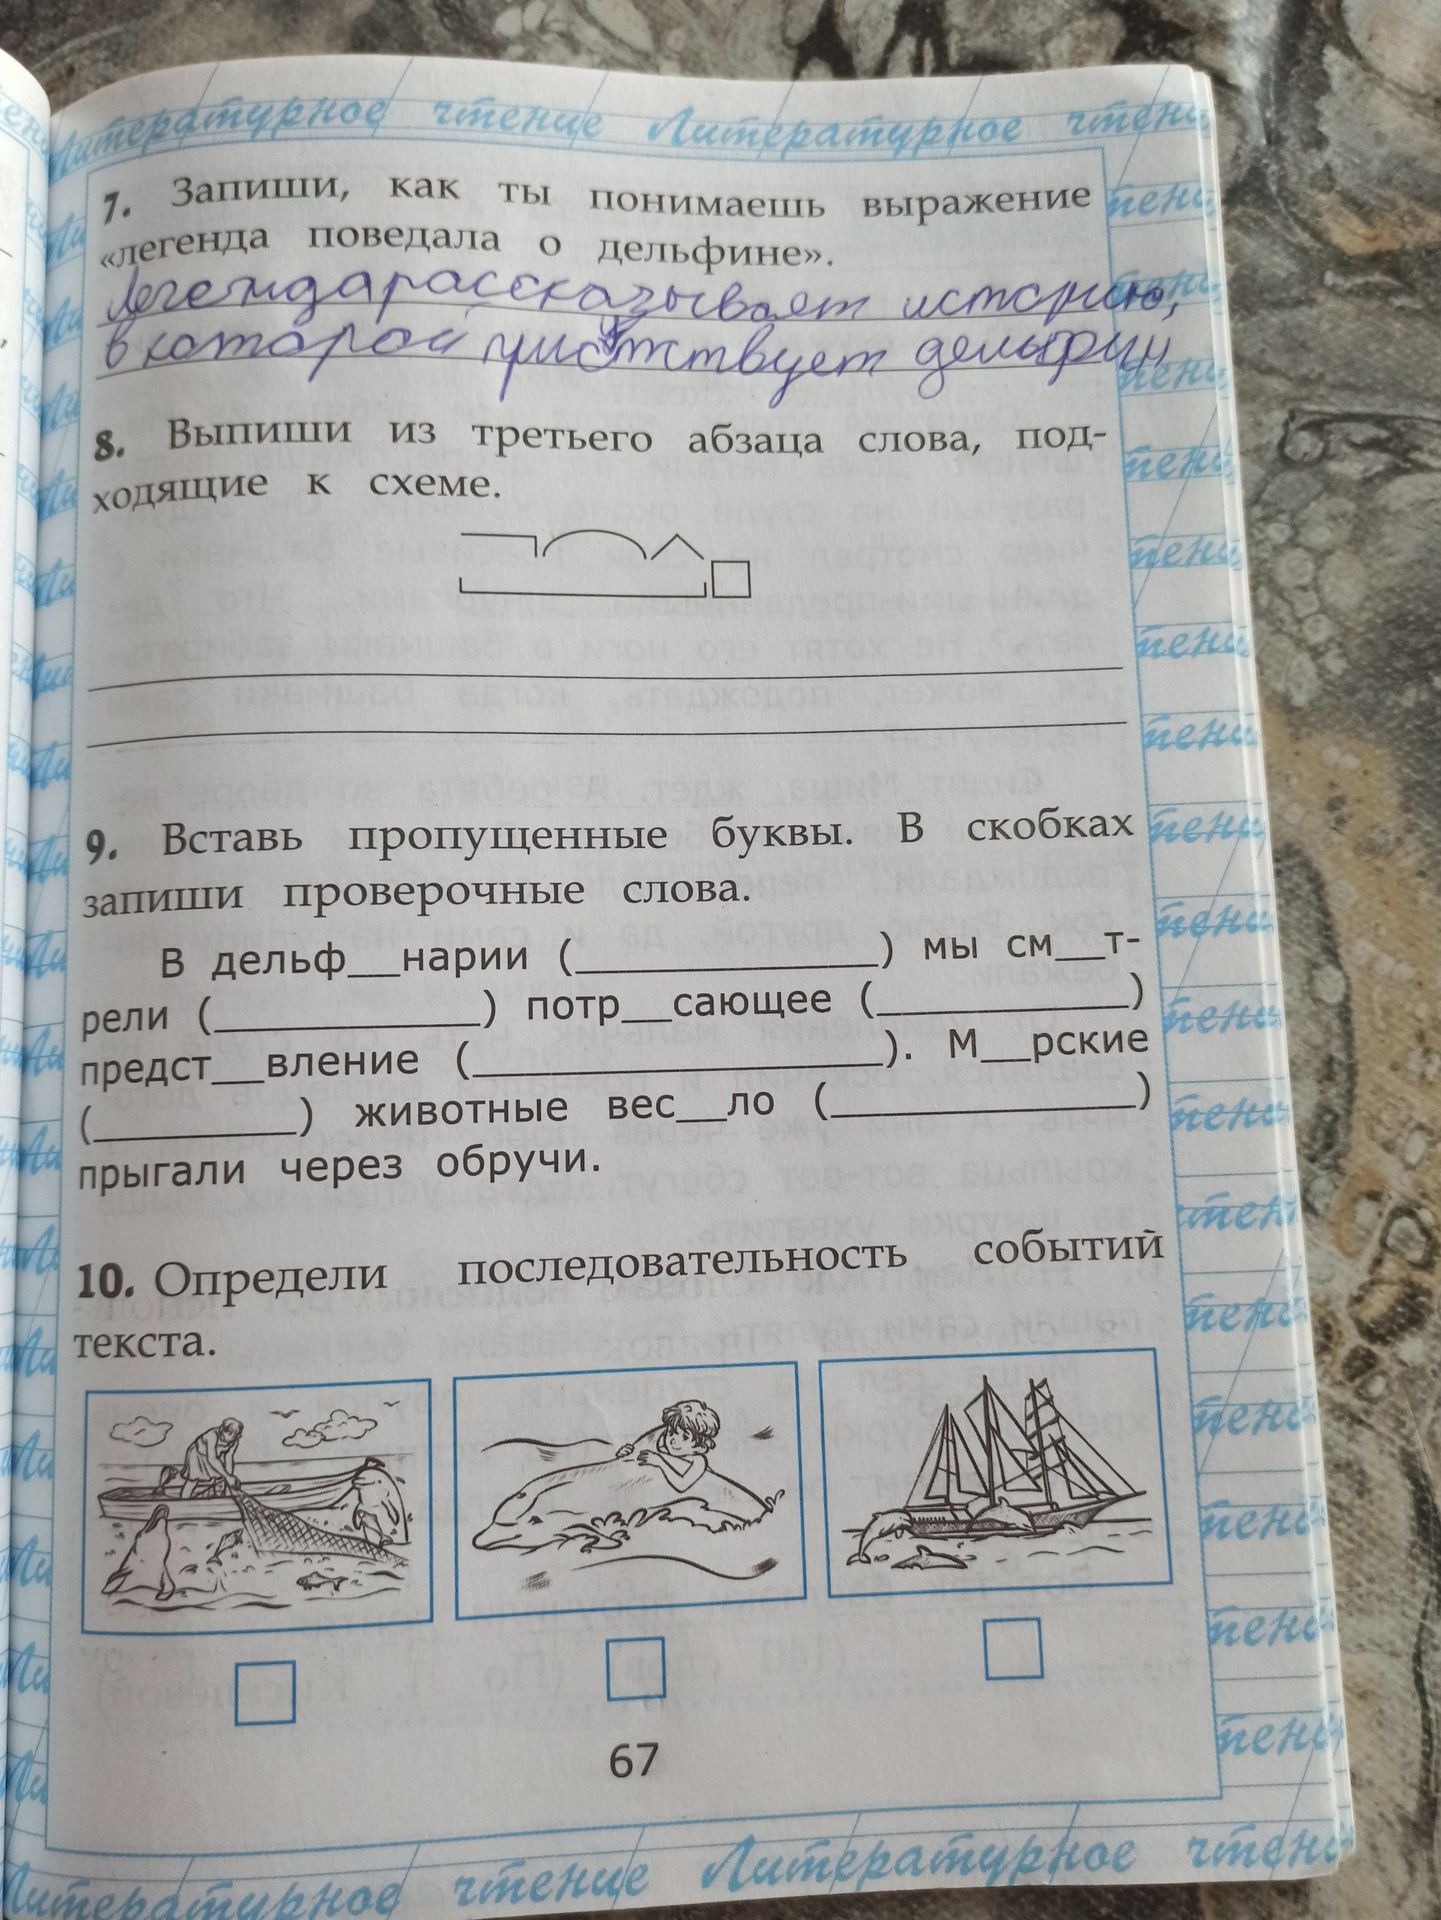 Литературное чтение Литературное чтени
7. Запиши, как ты понимаешь выражение
«легенда поведала о дельфине».
Легенда рассказывает историю,
в которой участвует дельфин
8. Выпиши из третьего абзаца слова, под-
ходящие к схеме.
9. Вставь пропущенные буквы. В скобках
запиши проверочные слова.
В дельф__нарии (____________) мы см__т-
рели (___________) потр__сающее (__________)
предст__вление (________________). М__рские
(________) животные вес__ло (____________)
прыгали через обручи.
10. Определи последовательность событий
текста.
67
Литературное чтение Литературное чтени